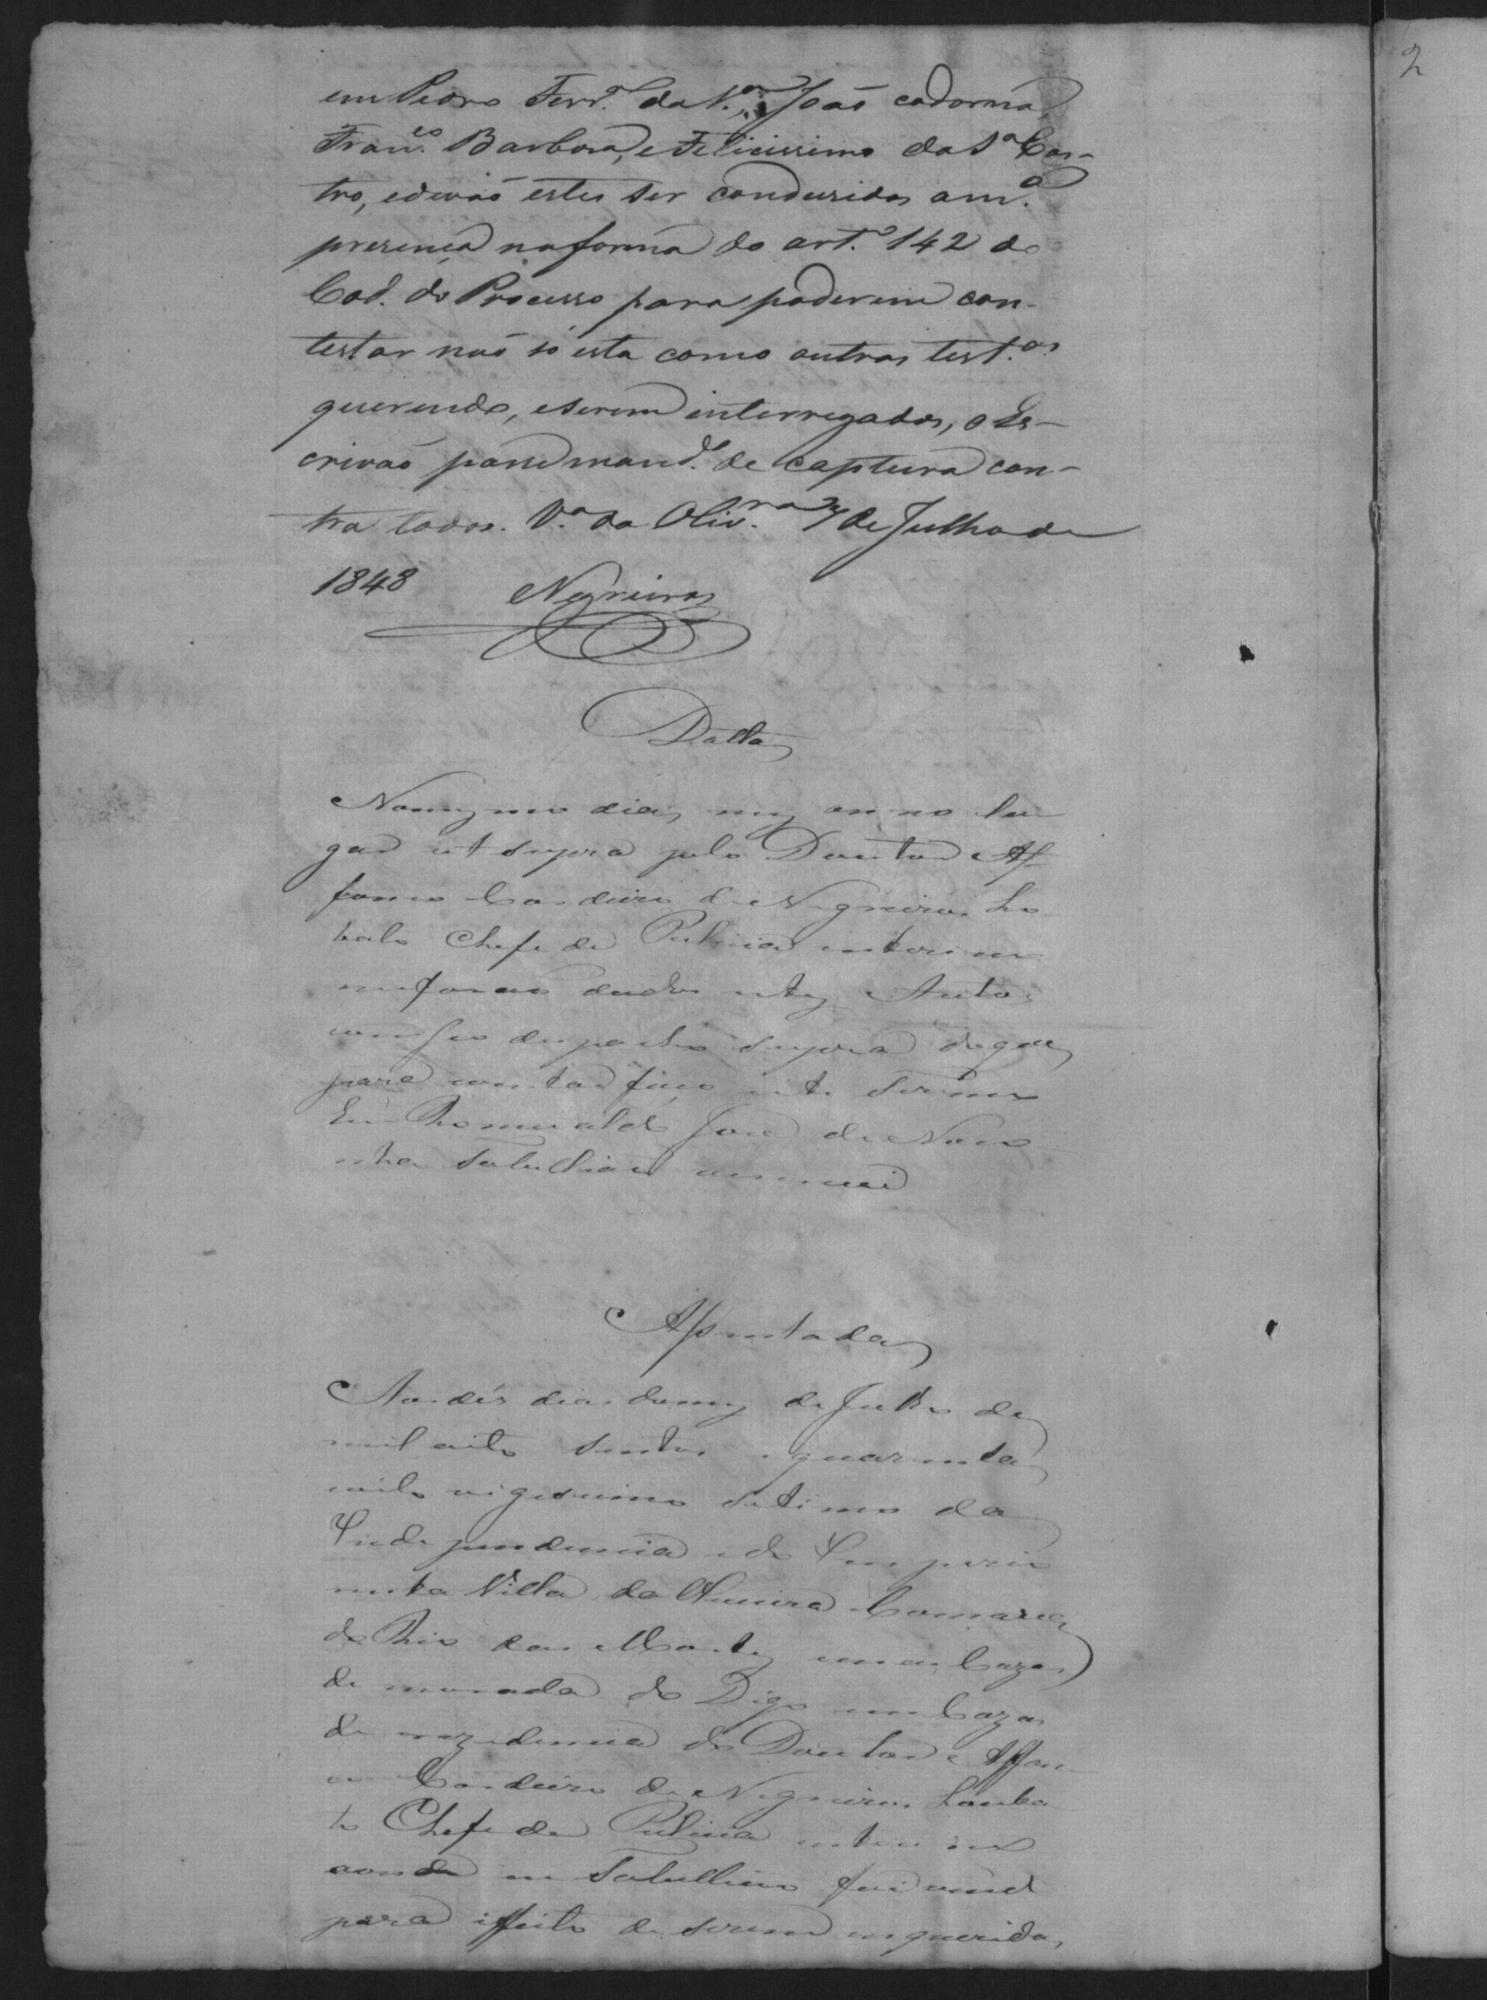 em Pedro Ferr.ª da S.ª, João cadorna,
Fran.co Barbosa, e Felicissimo da S.ª Cas-
tro, e devão estes ser condusidos a m.ª
presença na forma do art.º 142 do
Cod. do Processo para poderem con-
testar não só esta como outras test.as
querendo, e serem interrogados, o Es-
crivão passe mand.º de captura con-
tra todos. V.ª da Oliv.ra 7 de Julho de
1848 Negreiros
Datta
No mesmo dia, mez anno lu
gar ut supra pelo Doutor Af
fonso Cordeiro de Negreiros Lo
bato Chefe de Policia interino
me forão dados estes Autos
com seo despacho supra do que
para constar faço este termo
Eu Romualdo José de Noro
nha Tabelliam escrevi
Assentada
Aos dés dias do mez de Julho de
mil oito sentos e quarenta
e oito vigesimo setimo da
Independencia e do Imperio
nesta Villa da Oliveira Comarca
do Rio das Mortes em as Cazas
de morada do Digo em Cazas
de rezidencia do Doutor Affon
co Cordeiro de Negreiros Louba
to Chefe de Policia interino
aonde eu Tabelliam fui vindo
para effeito de serem inqueridas
2